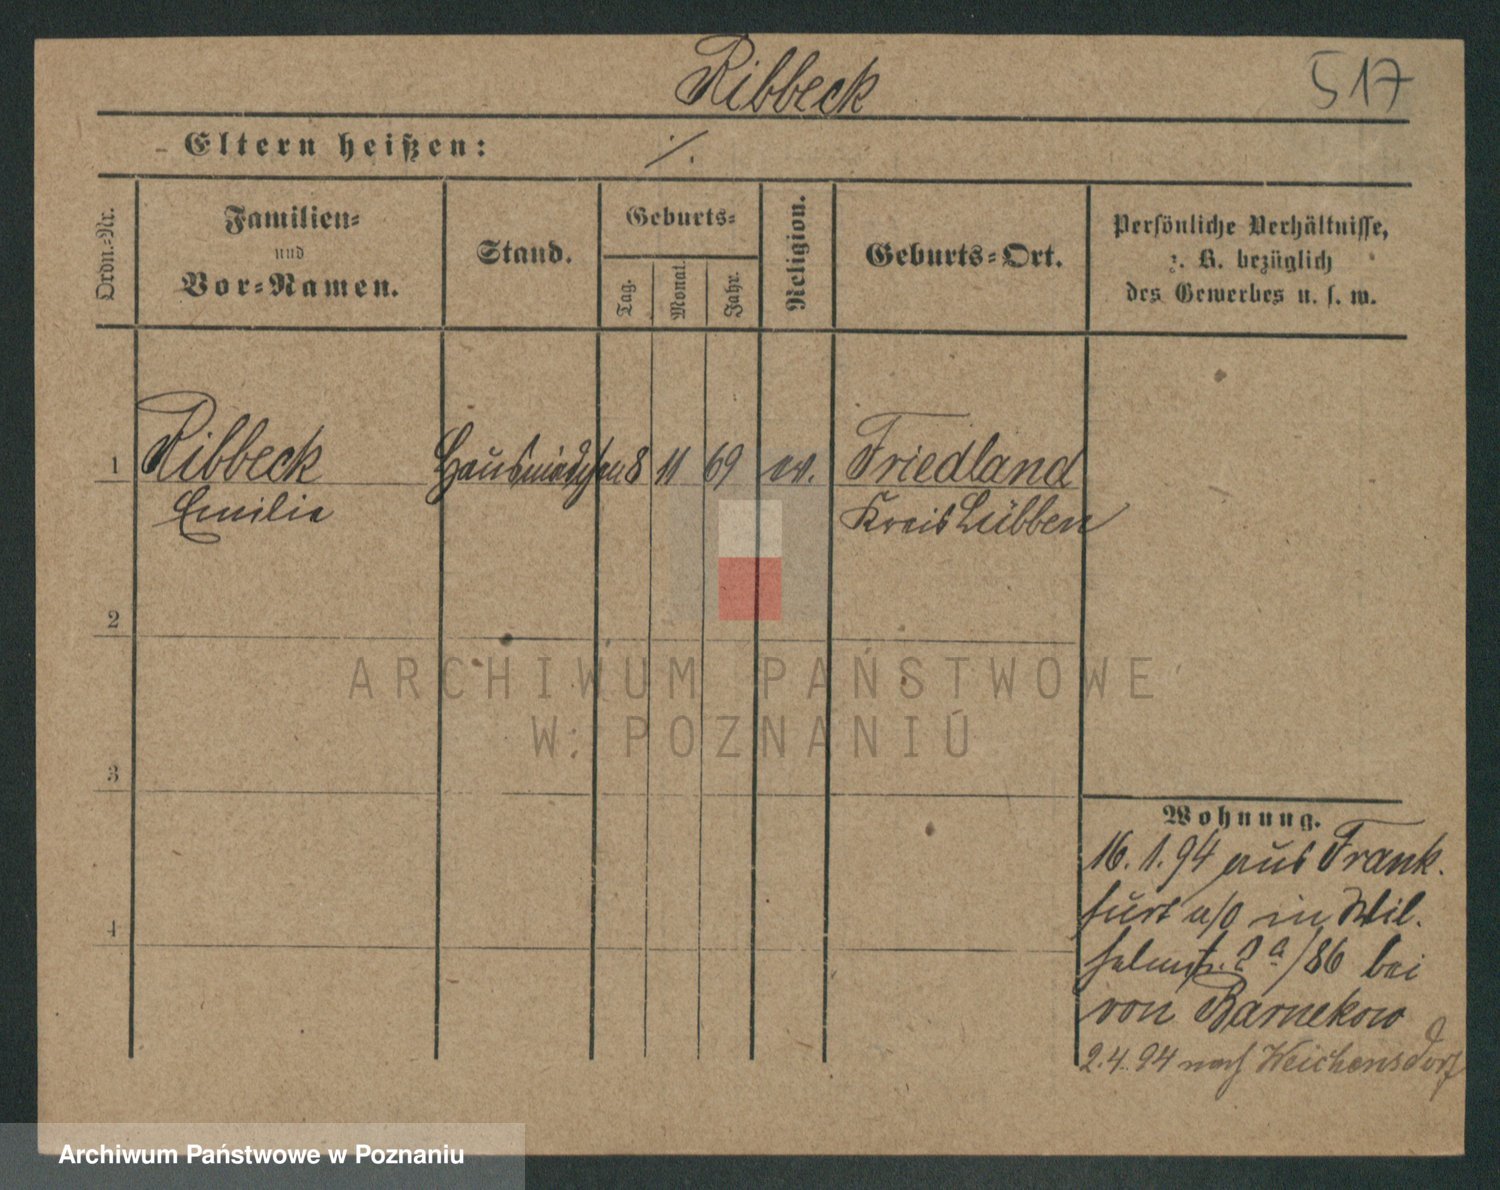 Ribbeck
517
Eltern heißen: ./.
Ordn.-Nr.
Familien-
und
Vor-Namen.
Stand.
Geburts-
Tag.
Monat.
Jahr.
Religion.
Geburts-Ort.
Persönliche Verhältnisse,
z. B. bezüglich
des Gewerbes u. s. w.
1 Ribbeck Hausmädchen 8 11 69 ev. Friedland
Emilie Kreis Lübben
2
3
4
ARCHIWUM PAŃSTWOWE
W POZNANIU
Wohnung.
16. 1. 94 aus Frank-
furt a/O in Wil-
helmstr. 2a/86 bei
von Barnekow
2.4.94 nach Weichensdorf
Archiwum Państwowe w Poznaniu